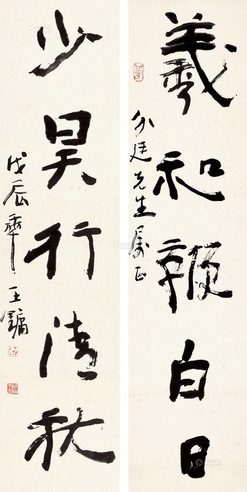 羲和鞭白日
分廷先生属正
少昊行清秋
戊辰年王镛